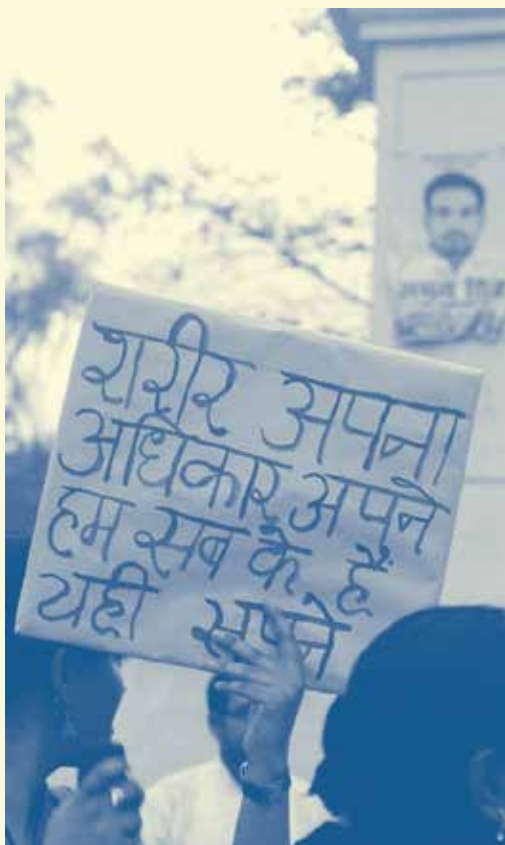 शरीर अपना
अधिकार अपने
हम सब के हैं
यही सपने